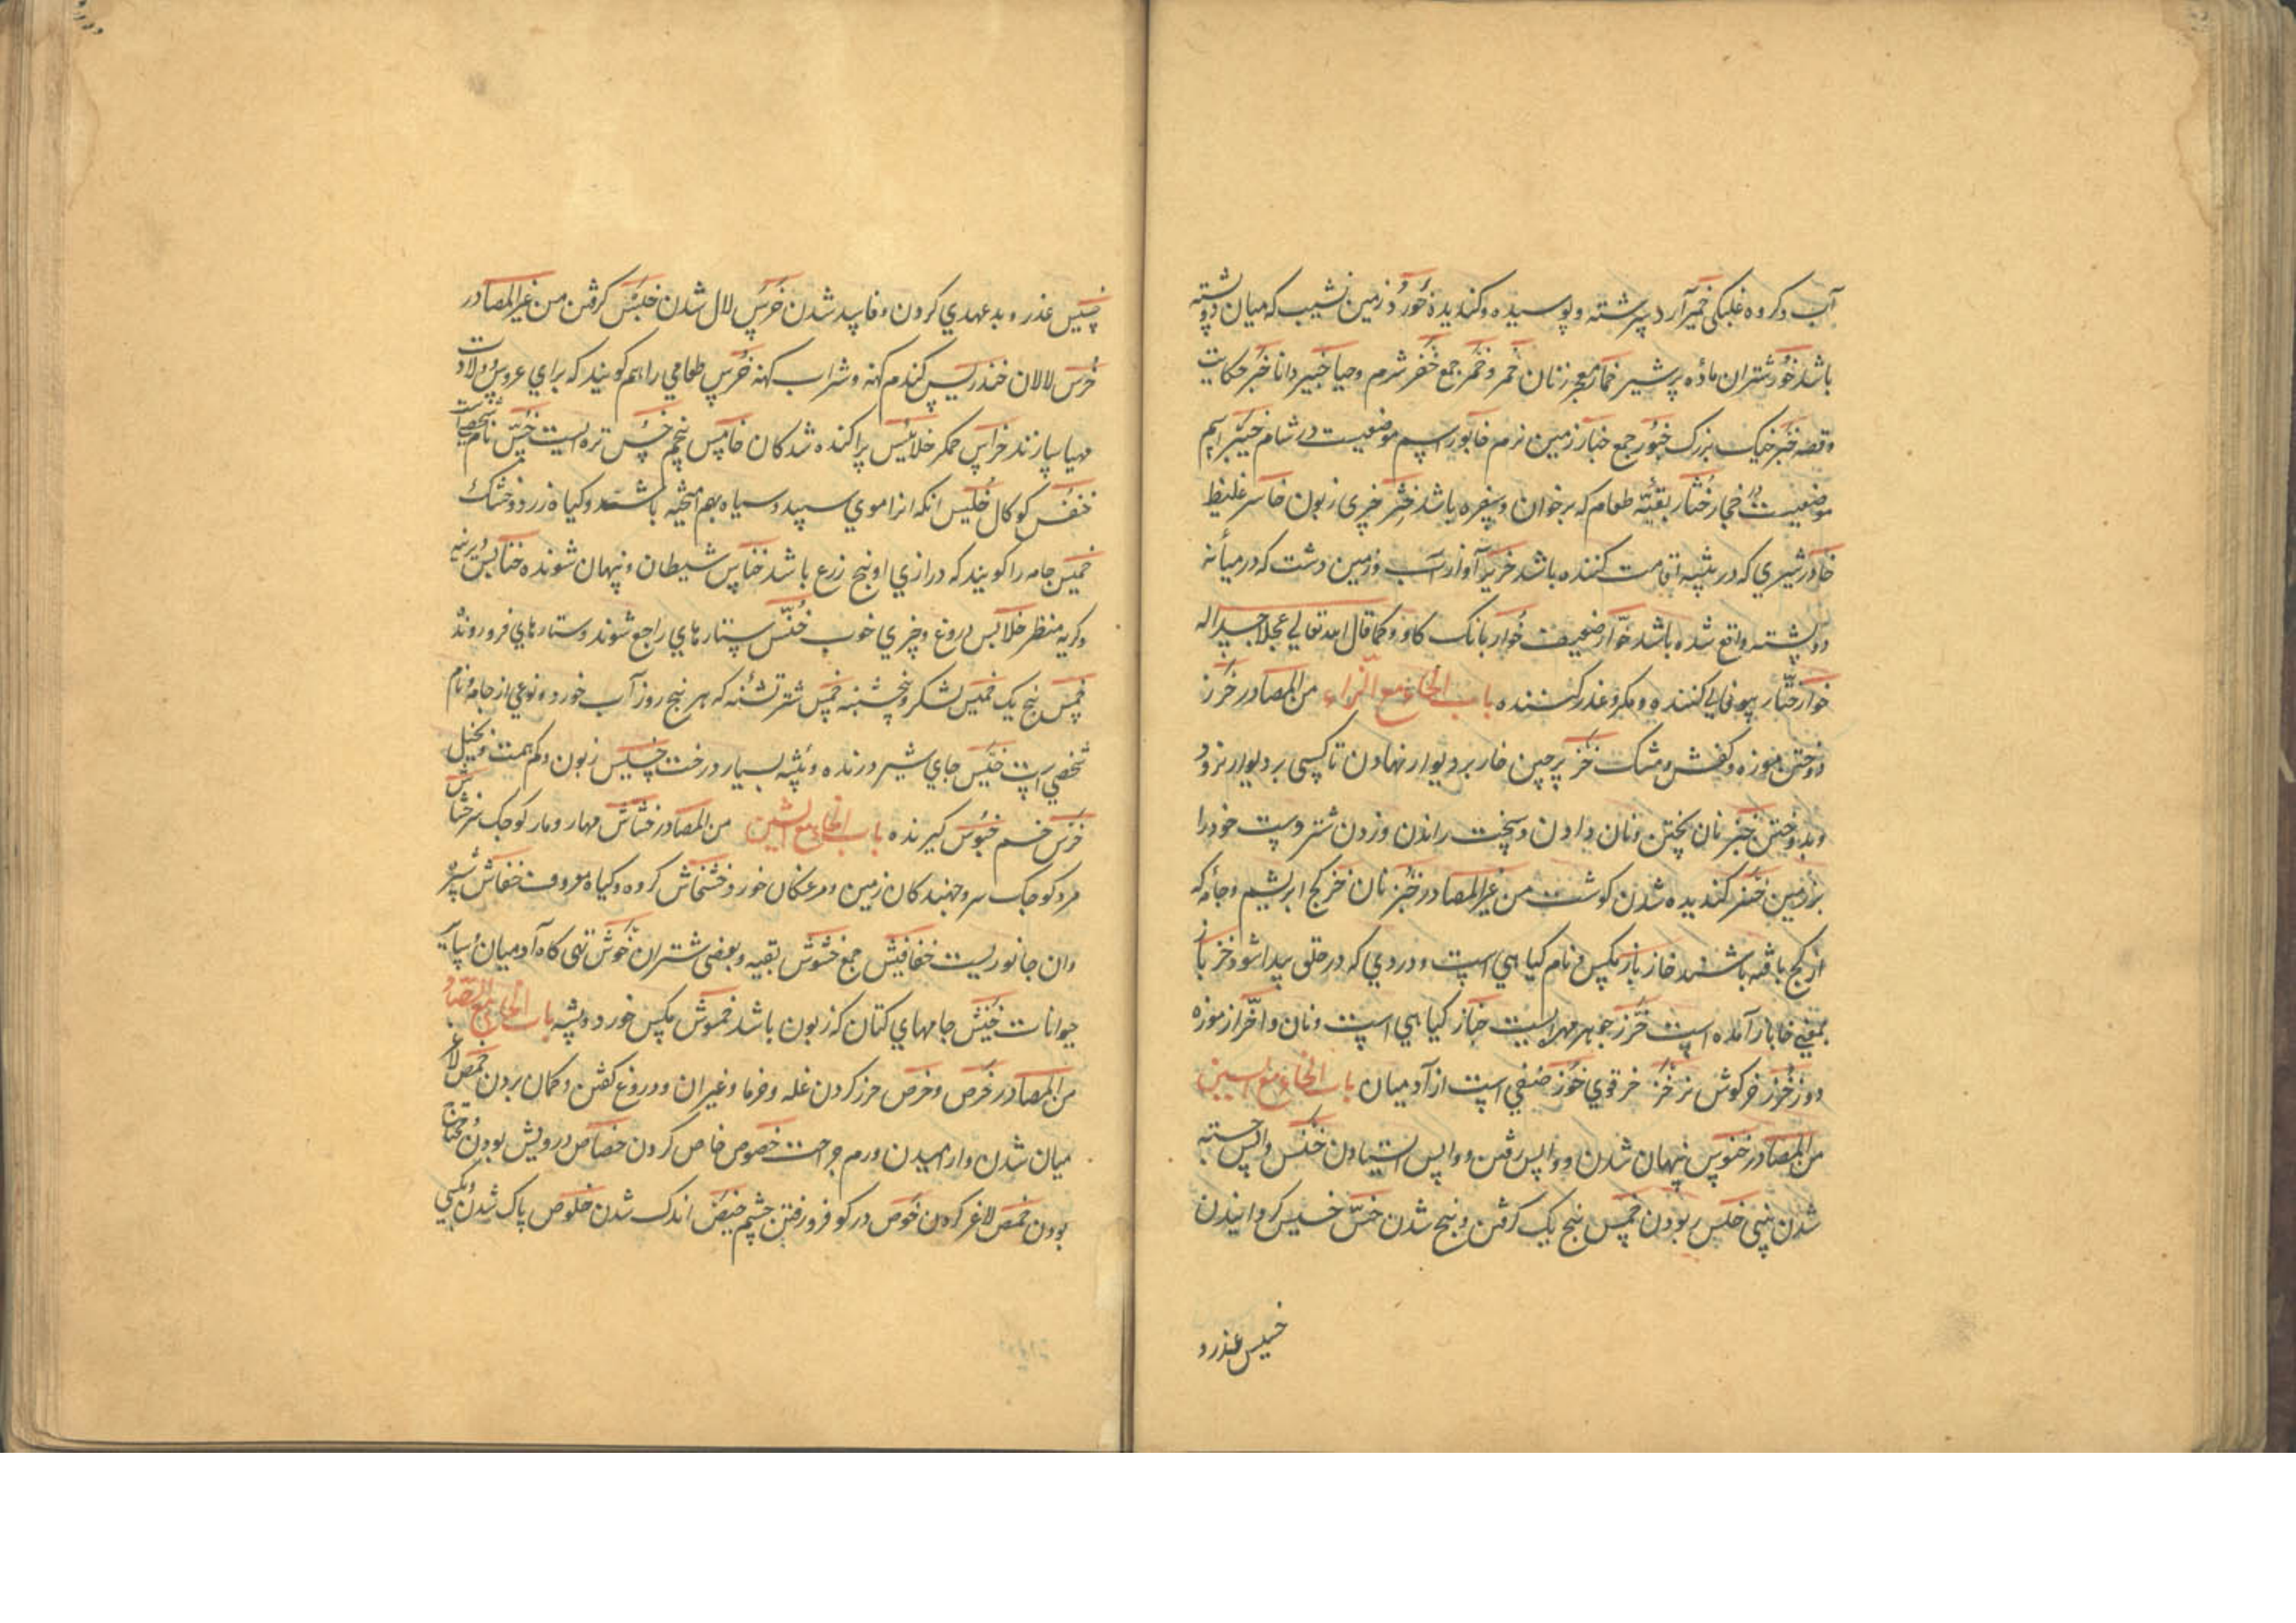 آب و کروه غلبکی خمیر آرد سرشته و پوسیده و کندیده خور و زمین نشیب که میان دو پشته
باشد خور شتران ماده پرشیر خمار معجر زنان خمر و خمر جمع خفر شرم و حیا خبیر دانا خبر حکایت
وقصه خبر خیک بزرک خبور جمع خبار زمین نرم خابور اسم موضعیست در شام خیبر اسم
موضعیست در حجاز خثار بقیه طعام که برخوان و سفره باشد خثر چیزی زبون خاسر غلیظ
خادر شیری که در بیشه اقامت کننده باشد خریر آواز آب و زمین دشت که در میانه
دو پشته واقع شده باشد خوار ضعیف خوار بانک کاو و کما قال الله تعالی عجلا جسدا له
خوار ختار بیوفایی کننده و مکر و غدر کننده باب الخاء مع الزاء من المصادر خرز
دوختن موزه و کفش و مشک خز پرچین خار بر دیوار نهادن تا کسی بر دیوار نرود
و بدوختن خبز نان پختن و نان دادن و سخت راندن و زدن شتر دست خود را
بزمین خنز کندیده شدن کوشت من غیر المصادر خبز نان خز کج ابریشم و جامه که
از کج بافته باشند خازباز مکس و نام کیاهی است و دردی که در حلق پیدا شود خزباز
بمعنی خازباز آمده است خرز جوهر مهراست خباز کیاهی است و نان وا خراز موزه
دوز خزز خرکوش نر خز خز قوی خوز صنفی است از آدمیان باب الخاء مع السین
من المصادر خنوس پنهان شدن و واپس رفتن و واپس استادن خنس واپس جسته
شدن بینی خلس ربودن خمس پنج یک کرفتن و پنج شدن خس خسیس کردانیدن
خیس غدر و
خیس غدر و بد عهدی کردن و فاسد شدن خرس لال شدن خبس کرفتن من غیر المصادر
خرس لالان خندریس کندم کهنه و شراب کهنه خرس طعامی را هم کویند که برای عروس و ولادت
مهیا سازند خراس خمکر خلابیس پراکنده شدکان خامس پنجم خس تره ایست خس نام شخصیست
خنفس کوکال خلیس انکه انرا موی سپید و سیاه بهم امیخته باشد و کیاه زرد و خشک
خمیس جامه را کویند که درازی او پنج زرع باشد خناس شیطان و پنهان شونده خنابس دیرینه
و کریه منظر خلابس دروغ و چیزی خوب خنس ستارهای راجع شوند و ستارهای فرو روند
خمس پنج یک خمیس لشکر و پنجشنبه خمس شتر تشنه که هر پنج روز آب خورد و نوعی از جامه و نام
شخصی است خیس جای شیر درنده و بیشه بسیار درخت خسیس زبون و کم همت و بخیل
خرس خم خبوس کیرنده باب الخاء مع الشین من المصادر خشاش مهار و مار کوچک سر خشاش
مرد کوچک سر و جنبدکان زمین و مرغکان خورد خشخاش کروه و کیاه معروف خفاش شب پره
وان جانوریست خفافیش جمع خشوش بقیه و بعضی شتران خوش تهی کاه آدمیان و سایر
حیوانات خیش جامهای کتان که زبون باشد خموش مکس خورد و پشه باب الخاء مع الصاد
من المصادر خرص و خرص حرز کردن غله و خرما و غیر ان و دروغ کفتن و کمان بردن خمص لاغر
میان شدن و ارامیدن ورم جراحت خصوص خاص کردن خصاص درویش بودن و محتاج
بودن خمص لاغر کردن خوص در کو فرو رفتن چشم خیص اندک شدن خلوص پاک شدن و بکسی